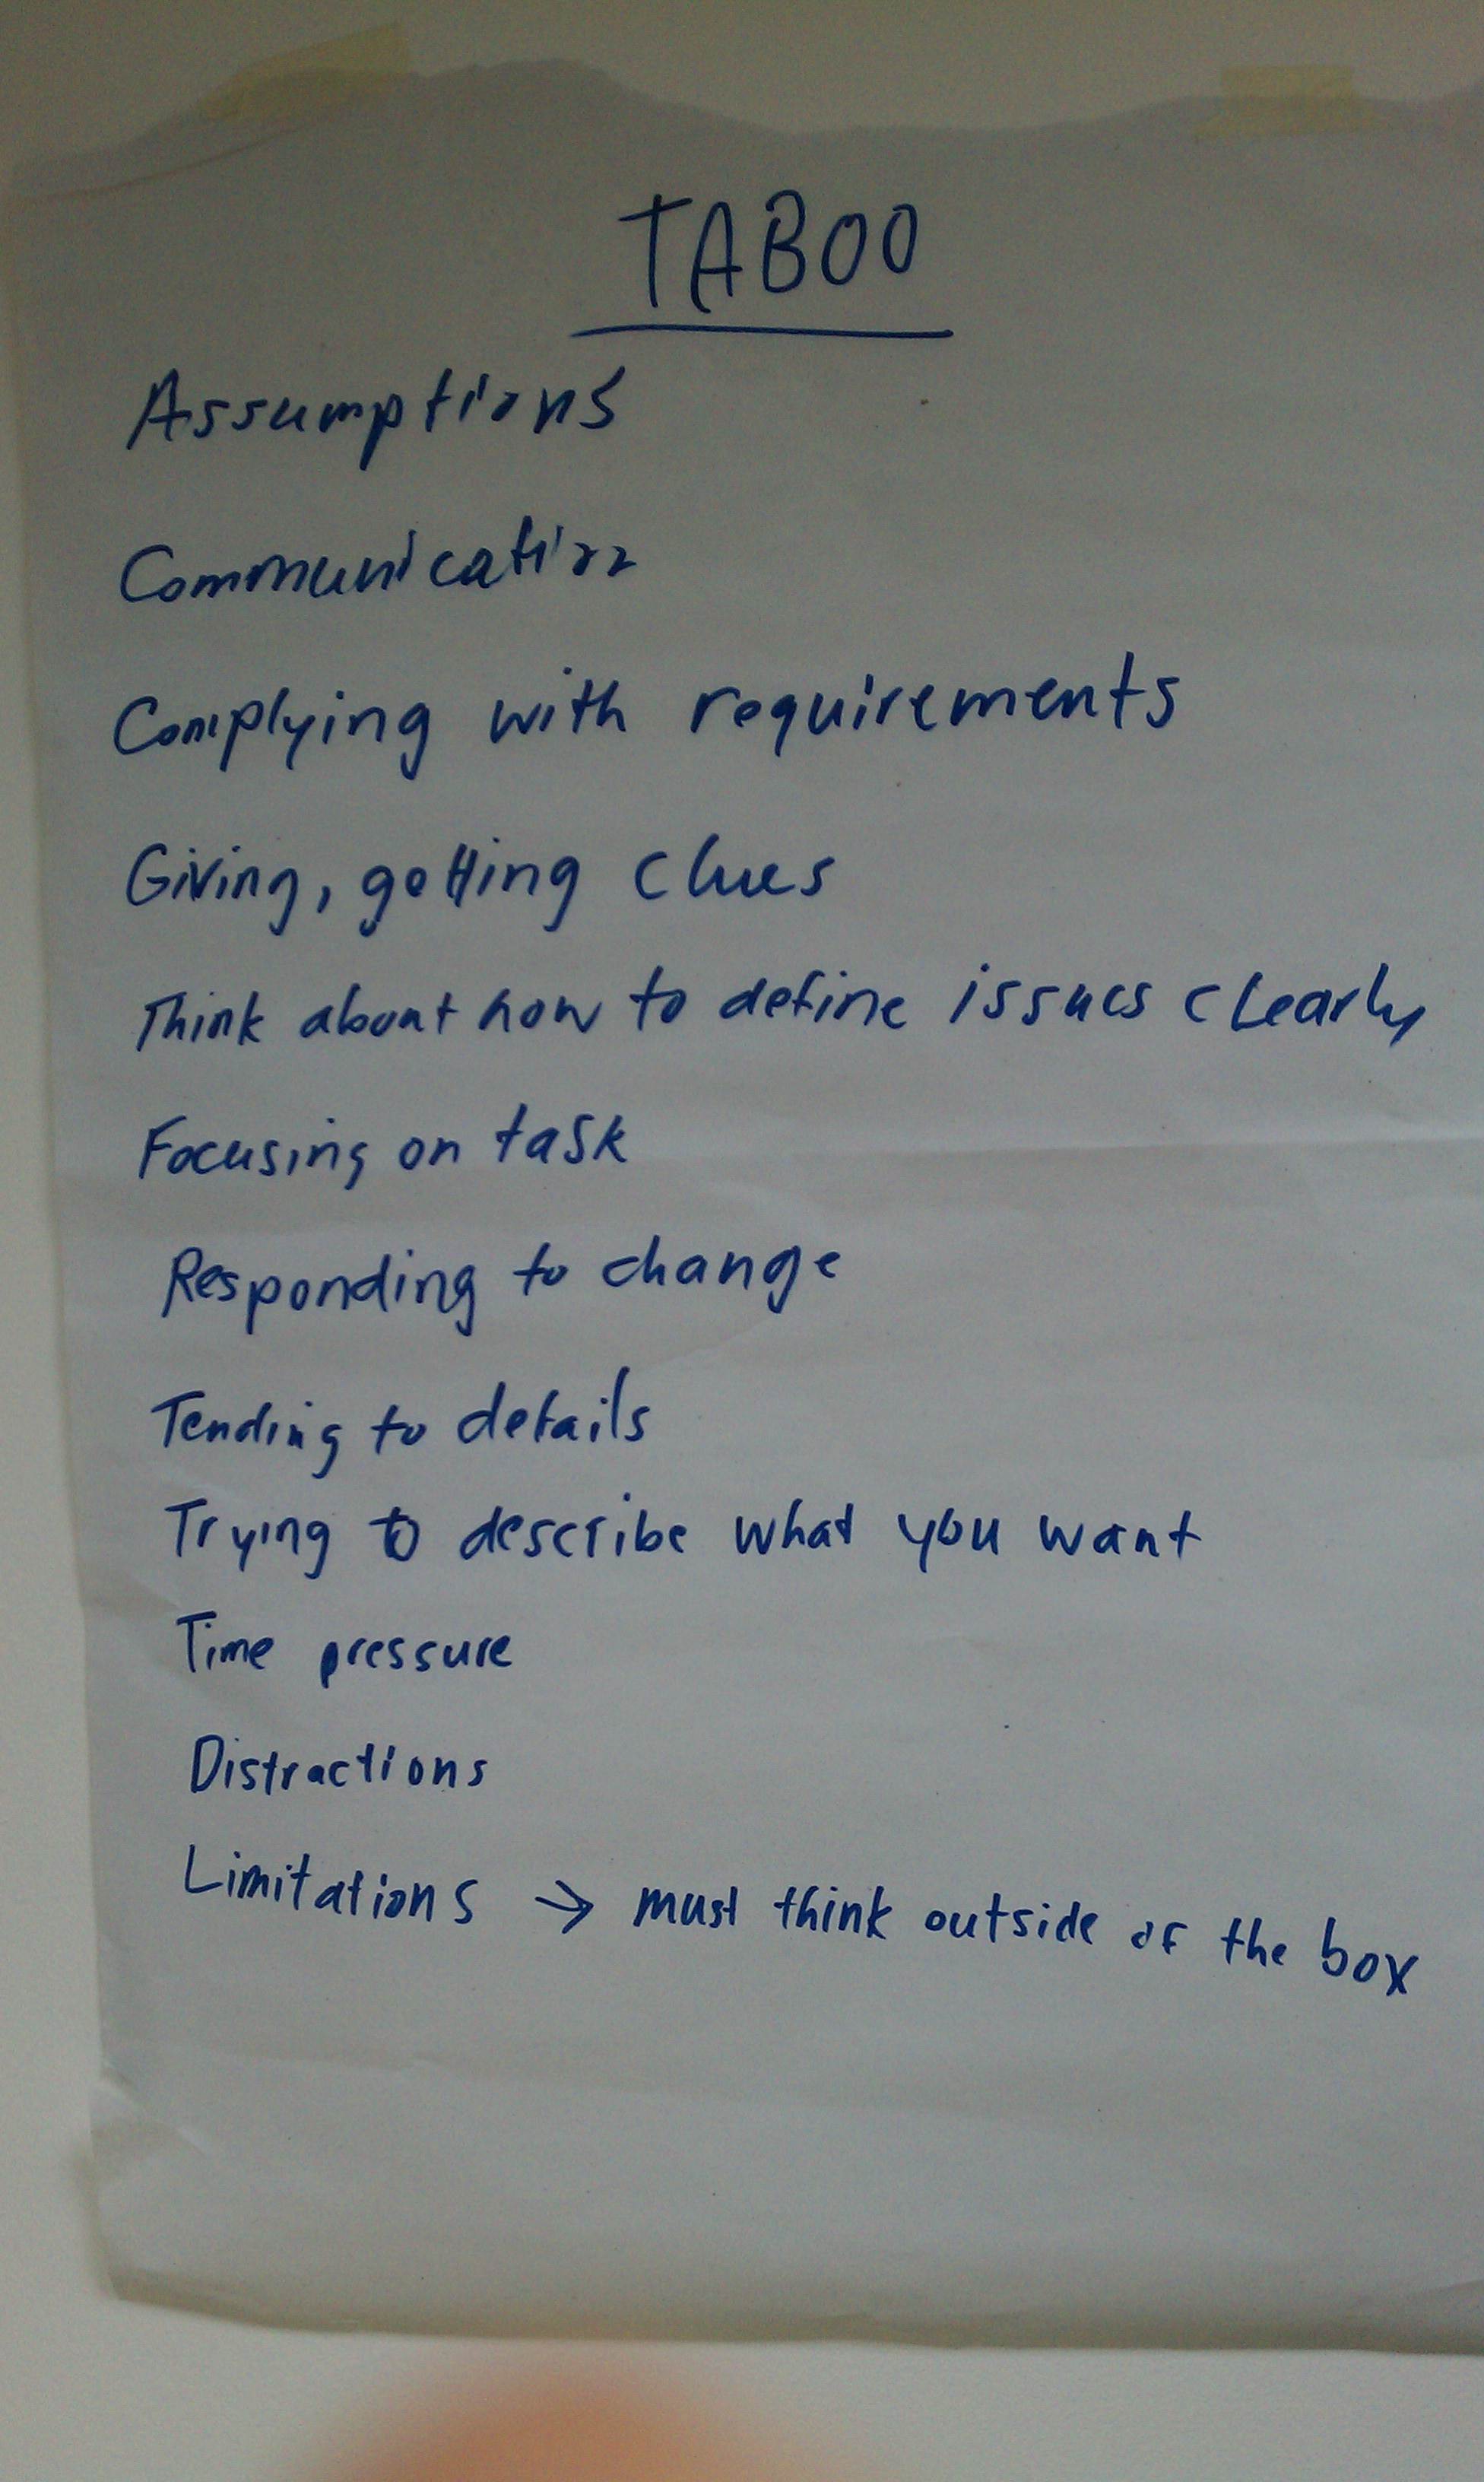 TABOO
Assumptions
Communication
Complying with requirements
Giving, getting clues
Think about how to define issues clearly
Focusing on task
Responding to change
Tending to details
Trying to describe what you want
Time pressure
Distractions
Limitations → must think outside of the box